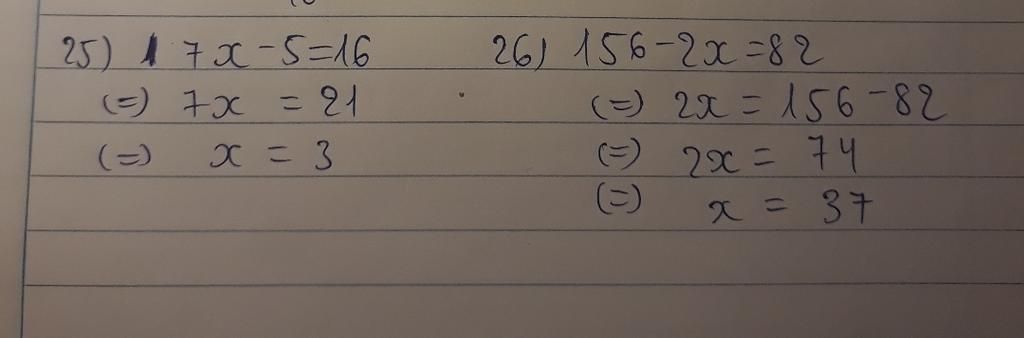 25) 7x-5=16
(=) 7x = 21
(=) x = 3
26) 156-2x=82
(=) 2x = 156-82
(=) 2x = 74
(=) x = 37